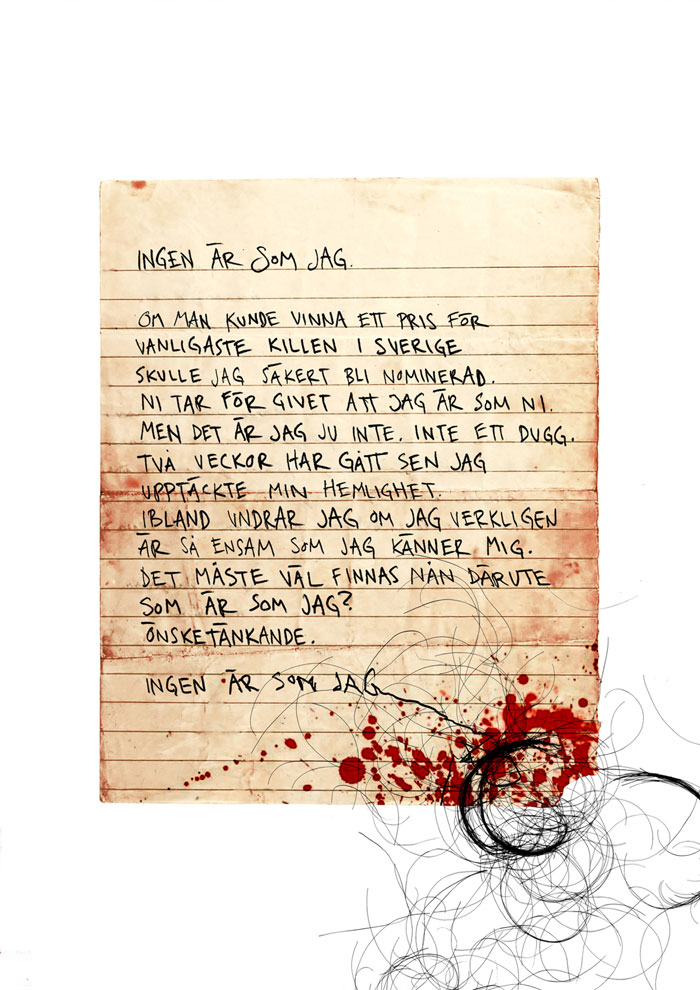 INGEN ÄR SOM JAG.
OM MAN KUNDE VINNA ETT PRIS FÖR
VANLIGASTE KILLEN I SVERIGE
SKULLE JAG SÄKERT BLI NOMINERAD.
NI TAR FÖR GIVET ATT JAG ÄR SOM NI.
MEN DET ÄR JAG JU INTE. INTE ETT DUGG.
TVÅ VECKOR HAR GÅTT SEN JAG
UPPTÄCKTE MIN HEMLIGHET.
IBLAND UNDRAR JAG OM JAG VERKLIGEN
ÄR SÅ ENSAM SOM JAG KÄNNER MIG.
DET MÅSTE VÄL FINNAS NÅN DÄRUTE
SOM ÄR SOM JAG?
ÖNSKETÄNKANDE.
INGEN ÄR SOM JAG